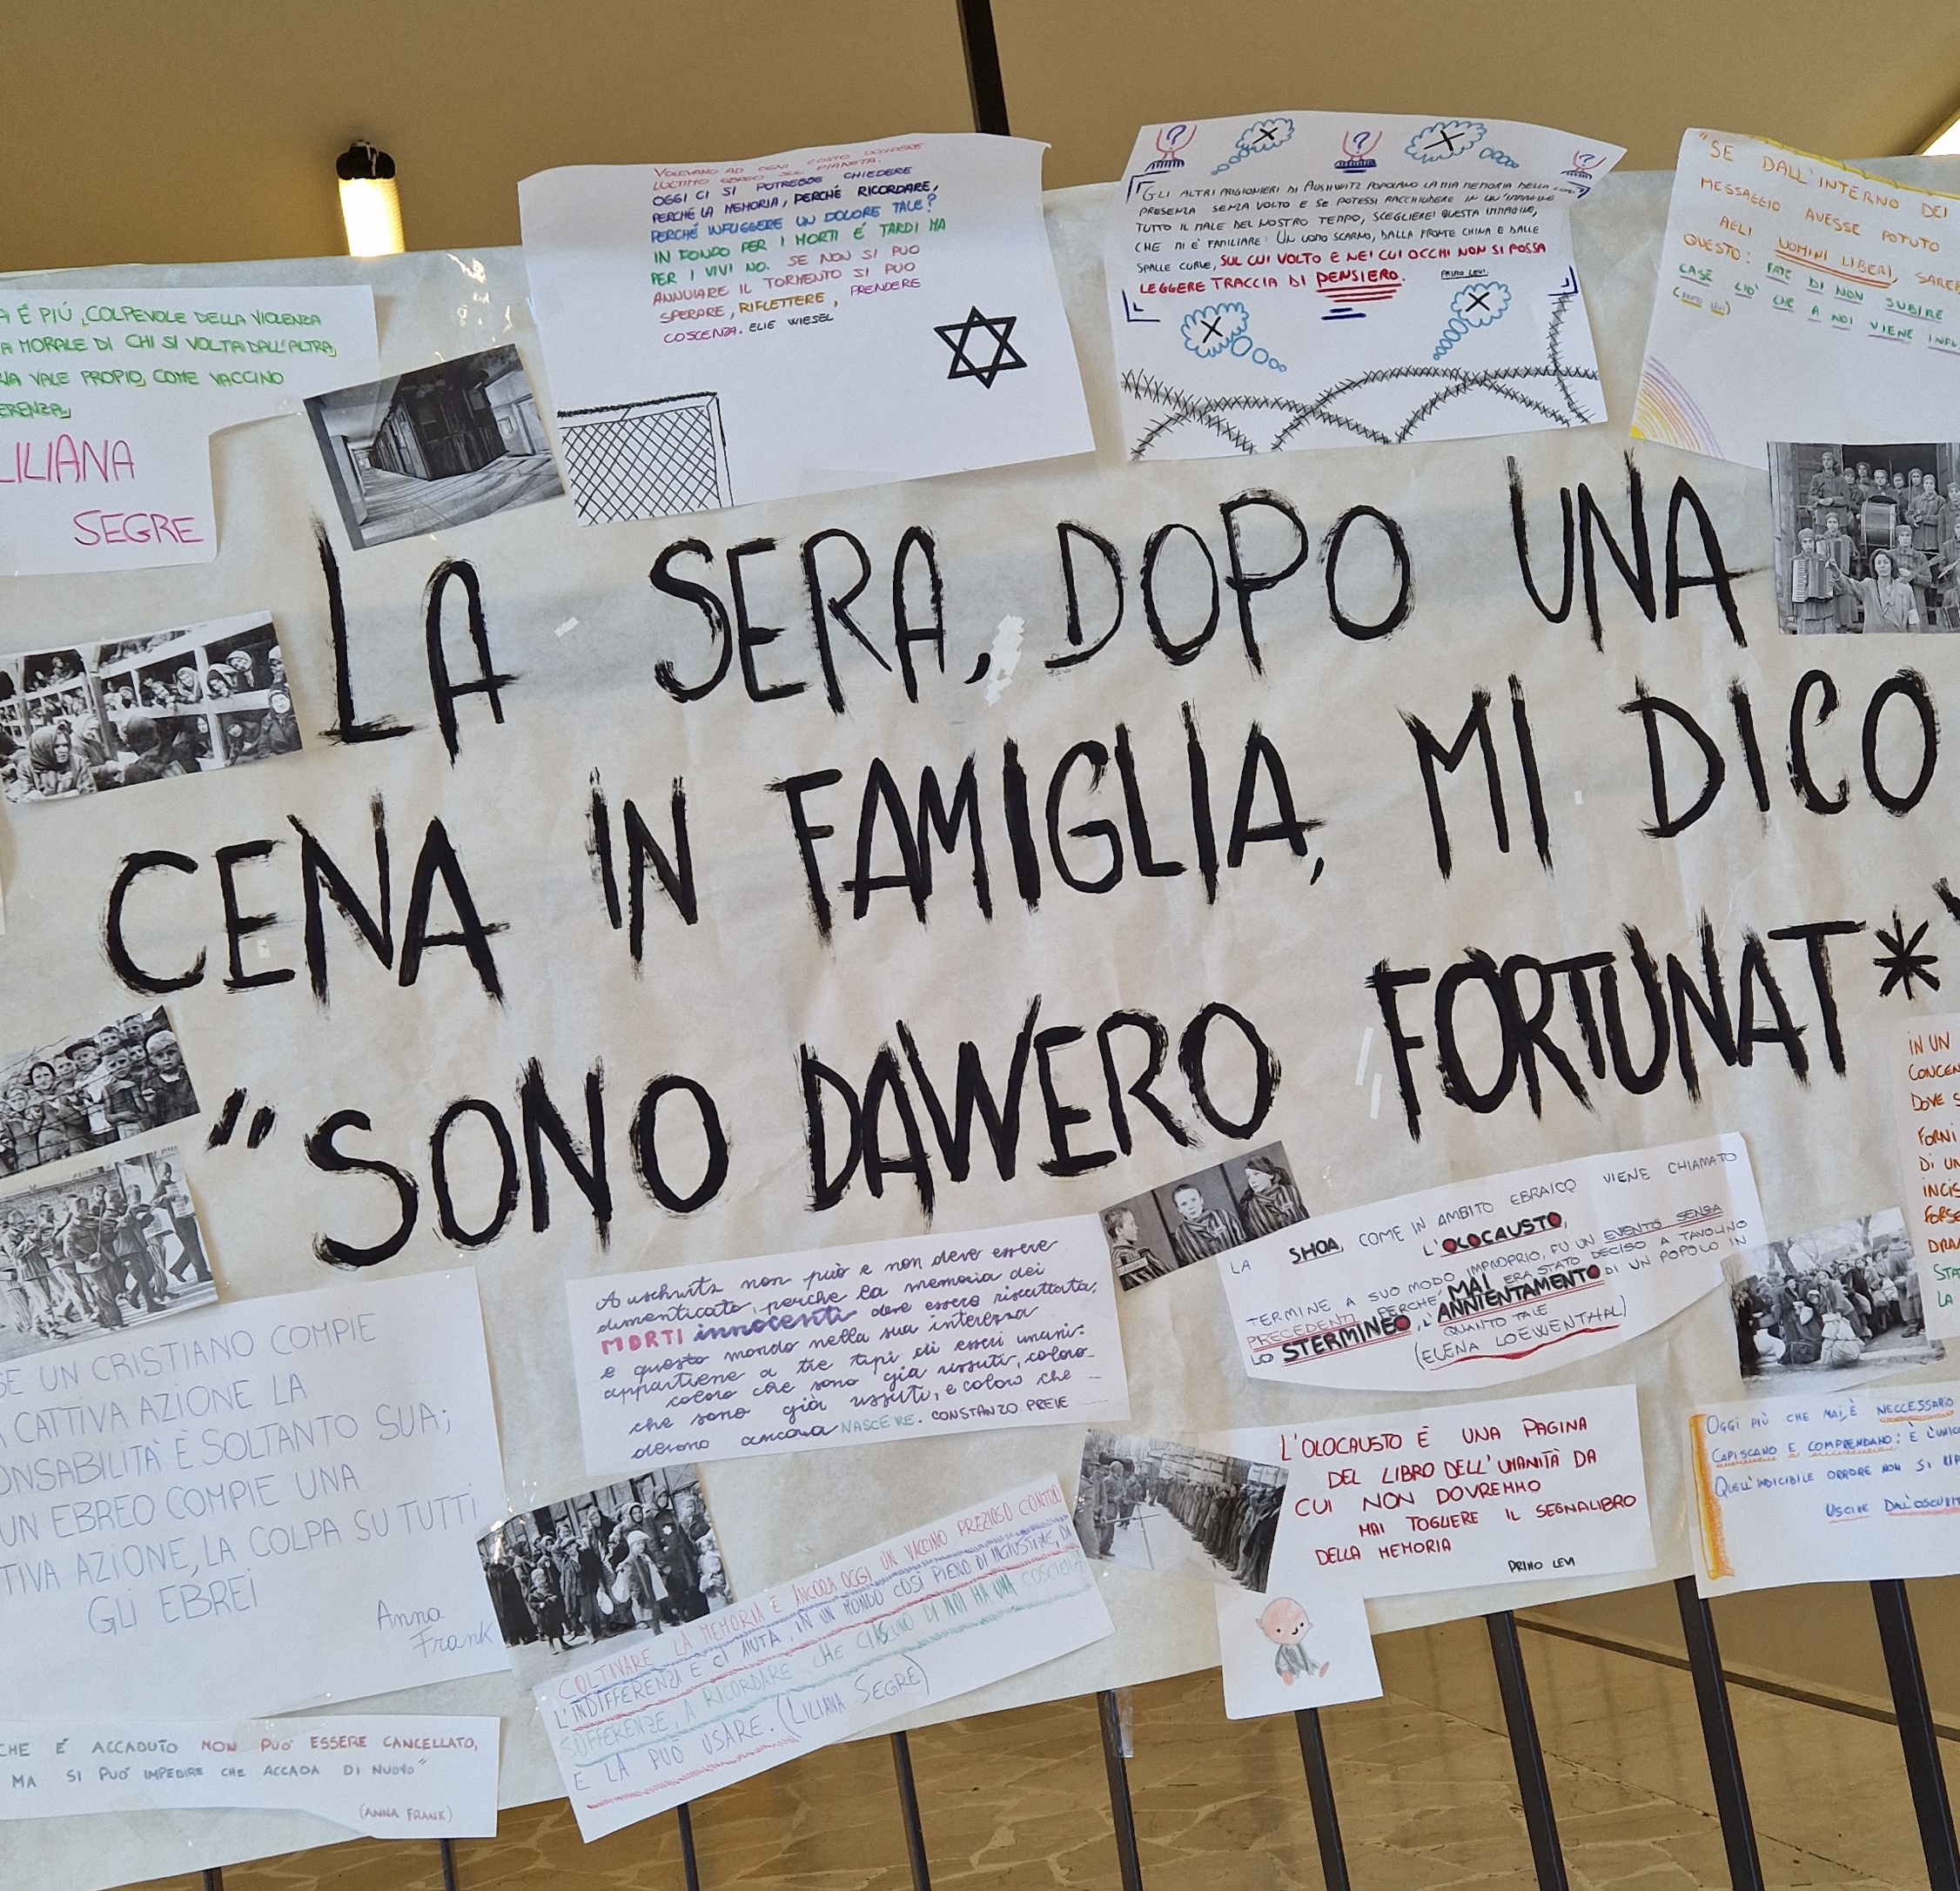 A É PIÙ COLPEVOLE DELLA VIOLENZA
A MORALE DI CHI SI VOLTA DALL'ALTRA
RIA VALE PROPIO, COME VACCINO
ERENZA
LILIANA
SEGRE
VOLEVANO AD OGNI COSTO UCCIDERE
L'ULTIMO EBREO SUL PIANETA.
OGGI CI SI POTREBBE CHIEDERE
PERCHÉ LA MEMORIA, PERCHÉ RICORDARE,
PERCHÉ INFLIGGERE UN DOLORE TALE?
IN FONDO PER I MORTI É TARDI MA
PER I VIVI NO. SE NON SI PUO
ANNULARE IL TORMENTO SI PUO
SPERARE, RIFLETTERE, PRENDERE
COSCENZA. ELIE WIESEL
? ? ?
"GLI ALTRI PRIGIONIERI DI AUSHWITZ POPOLANO LA MIA MEMORIA DELLA LORO
PRESENZA SENZA VOLTO E SE POTESSI RACCHIUDERE IN UN'IMMAGINE
TUTTO IL MALE DEL NOSTRO TEMPO, SCEGLIEREI QUESTA IMMAGINE,
CHE MI É FAMILIARE: UN UOMO SCARNO, DALLA FRONTE CHINA E DALLE
SPALLE CURVE, SUL CUI VOLTO E NEI CUI OCCHI NON SI POSSA
LEGGERE TRACCIA DI PENSIERO. PRIMO LEVI
"SE DALL'INTERNO DEI
MESSAGGIO AVESSE POTUTO
AGLI UOMINI LIBERI, SAREB
QUESTO: FATE DI NON SUBIRE
CASE CIO' CHE A NOI VIENE INFL
(PRIMO LEVI)
LA SERA, DOPO UNA
CENA IN FAMIGLIA, MI DICO
"SONO DAVVERO FORTUNAT*"
IN UN
CONCEN
DOVE S
FORNI
DI UN
INCIS
FORSE
DRA
STA
LA
SE UN CRISTIANO COMPIE
A CATTIVA AZIONE LA
ONSABILITÀ È SOLTANTO SUA;
UN EBREO COMPIE UNA
TIVA AZIONE, LA COLPA SU TUTTI
GLI EBREI
Anna
Frank
Auschwitz non può e non deve essere
dimenticato, perche la memoria dei
MORTI innocenti deve essere riscattata,
e questo mondo nella sua interezza
appartiene a tre tipi di esseri umani:
coloro che sono già vissuti, coloro
che sono già vissuti, e coloro che
devono ancora NASCERE. CONSTANZO PREVE
LA SHOA, COME IN AMBITO EBRAICO VIENE CHIAMATO
L'OLOCAUSTO,
TERMINE A SUO MODO IMPROPRIO, FU UN EVENTO SENSA
PRECEDENTI PERCHÉ MAI ERA STATO DECISO A TAVOLINO
LO STERMINEO, L'ANNIENTAMENTO DI UN POPOLO IN
QUANTO TALE
(ELENA LOEWENTHAL)
L'OLOCAUSTO É UNA PAGINA
DEL LIBRO DELL'UMANITÀ DA
CUI NON DOVREMMO
MAI TOGLIERE IL SEGNALIBRO
DELLA MEMORIA
PRIMO LEVI
OGGI PIÙ CHE MAI, È NECCESSARIO
CAPISCANO E COMPRENDANO: È L'UNICO
QUELL'INDICIBILE ORRORE NON SI RIP
USCIRE DALL'OSCURIT
COLTIVARE LA MEMORIA È ANCORA OGGI UN VACCINO PREZIOSO CONTRO
L'INDIFFERENZA E CI AIUTA, IN UN MONDO COSÌ PIENO DI INGIUSTIZIE, DI
SOFFERENZE, A RICORDARE CHE CIASCUNO DI NOI HA UNA COSCIENZA
E LA PUÒ USARE. (LILIANA SEGRE)
CHE É ACCADUTO NON PUO' ESSERE CANCELLATO,
MA SI PUO' IMPEDIRE CHE ACCADA DI NUOVO"
(ANNA FRANK)